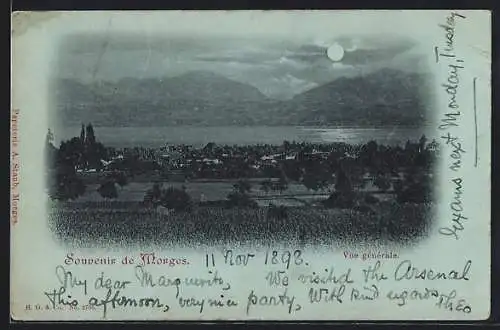 Papeterie A. Staub, Morges.
Exams next Monday, Tuesday
Souvenir de Morges.
11 Nov 1898.
Vue générale.
My dear Marguerite, We visited the Arsenal
this afternoon, very nice party, With kind regards, Theo
H. G. & Co. No.